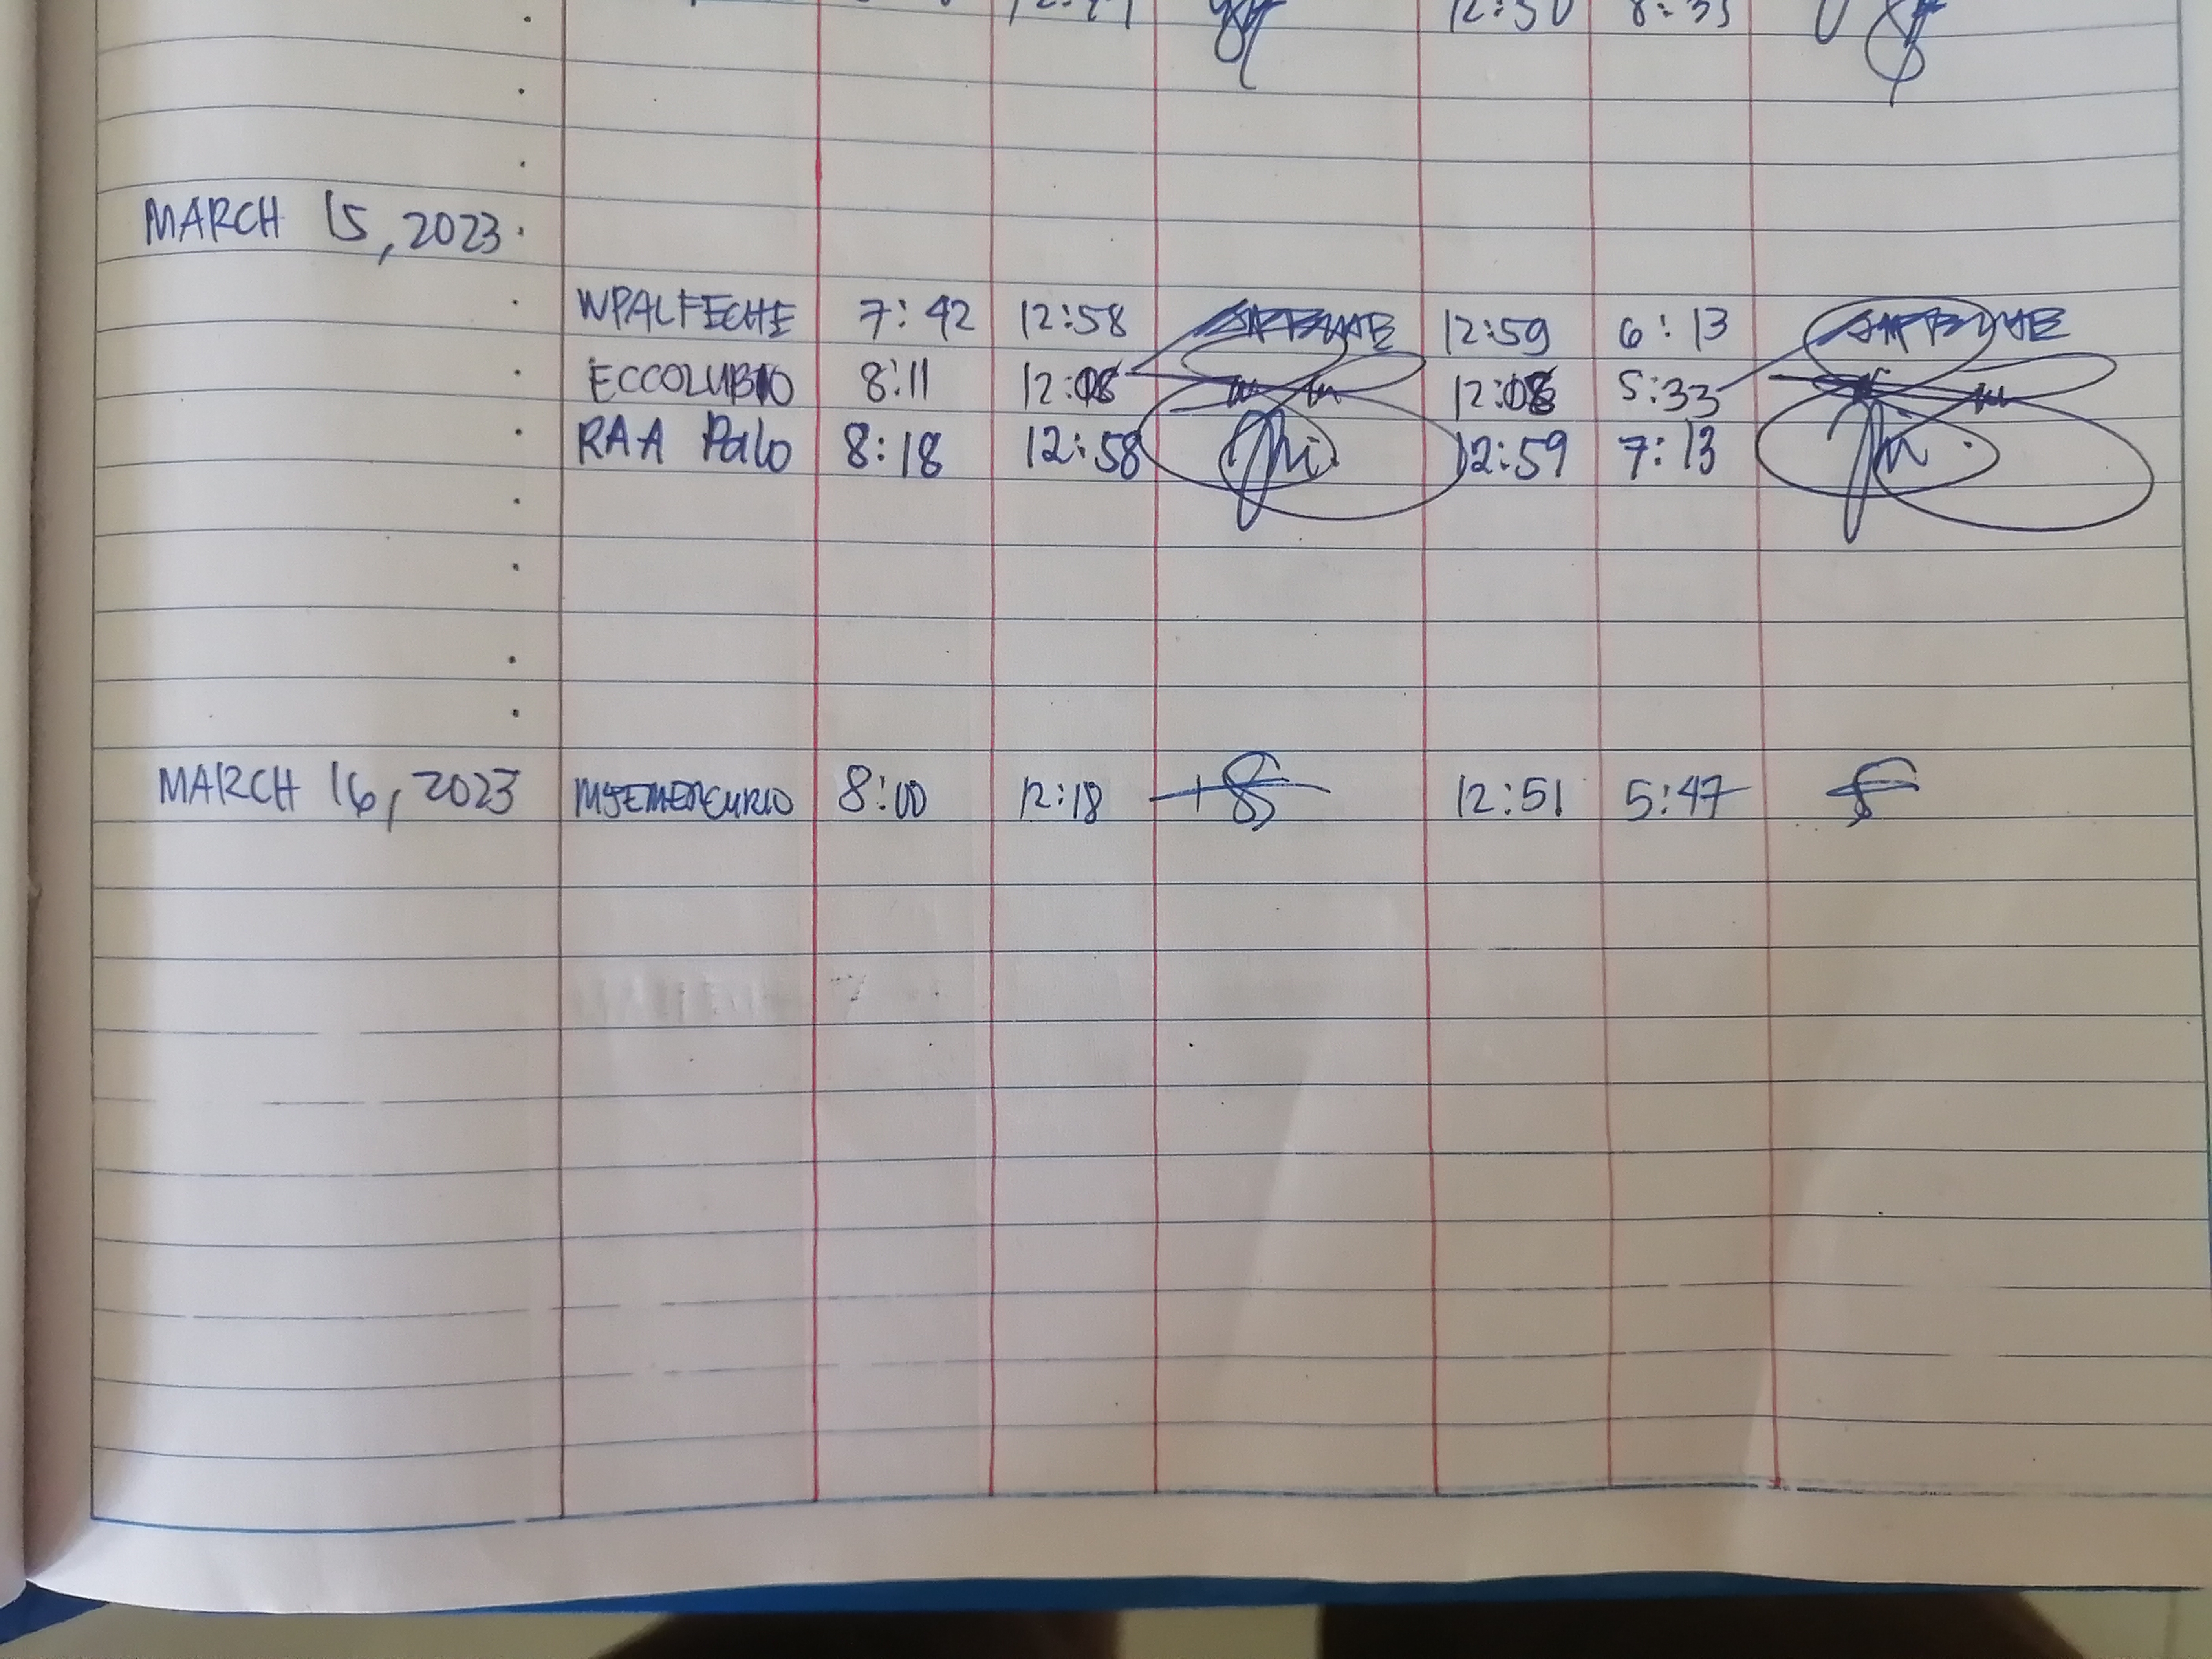 12:50 8:35
MARCH 15, 2023
WPALFECHE 7:42 12:58 12:59 6:13
ECCOLUBIO 8:11 12:08 12:08 5:33
RAA Palo 8:18 12:58 12:59 7:13
MARCH 16, 2023 MJEMERCURIO 8:00 12:18 12:51 5:47